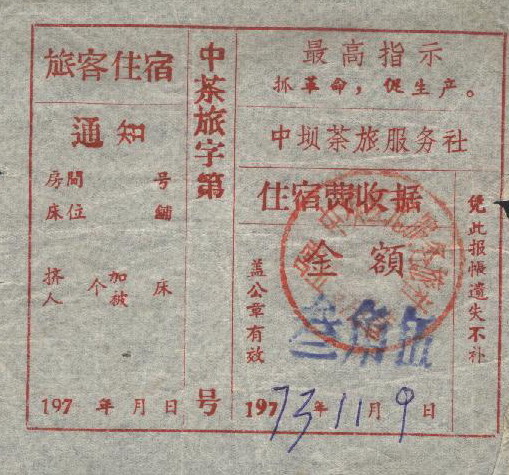 旅客住宿
通知
房間 号
床位 鋪
挤 个 加 床
人 被
197 年 月 日
中茶旅字第
号
最高指示
抓革命，促生产。
中坝茶旅服务社
住宿费收据
金额
叁角伍
盖公章有效
1973年11月9日
凭此报帐遗失不补